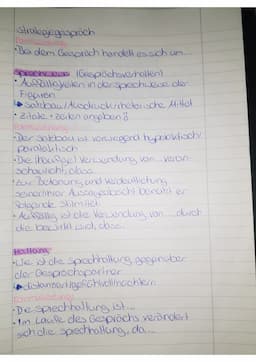 Strategiegespräch
Formulierung
• Bei dem Gespräch handelt es sich um...
Sprachweise (Gesprächsverhalten)
• Auffälligkeiten in der Sprechweise der
Figuren
↳ Satzbau/Ausdruck/rhetorische Mittel
• Zitate + zeilen angeben!
Formulierung
• Der Satzbau ist vorwiegend hypotaktisch/
parataktisch
• Die häufige Verwendung von... veran-
schaulicht, dass
• Zur Betonung und Verdeutlichung
seiner/ihrer Aussageabsicht benutzt er
folgende Stilmittel:
• Auffällig ist die Verwendung von ... durch
die bewirkt wird, dass...
Haltung
• Wie ist die Sprechhaltung gegenüber
der Gesprächspartner
↳ distanziert/gefühlvoll/nüchtern
Formulierung
• Die Sprechhaltung ist...
• Im Laufe des Gesprächs verändert
sich die Sprechhaltung, da...